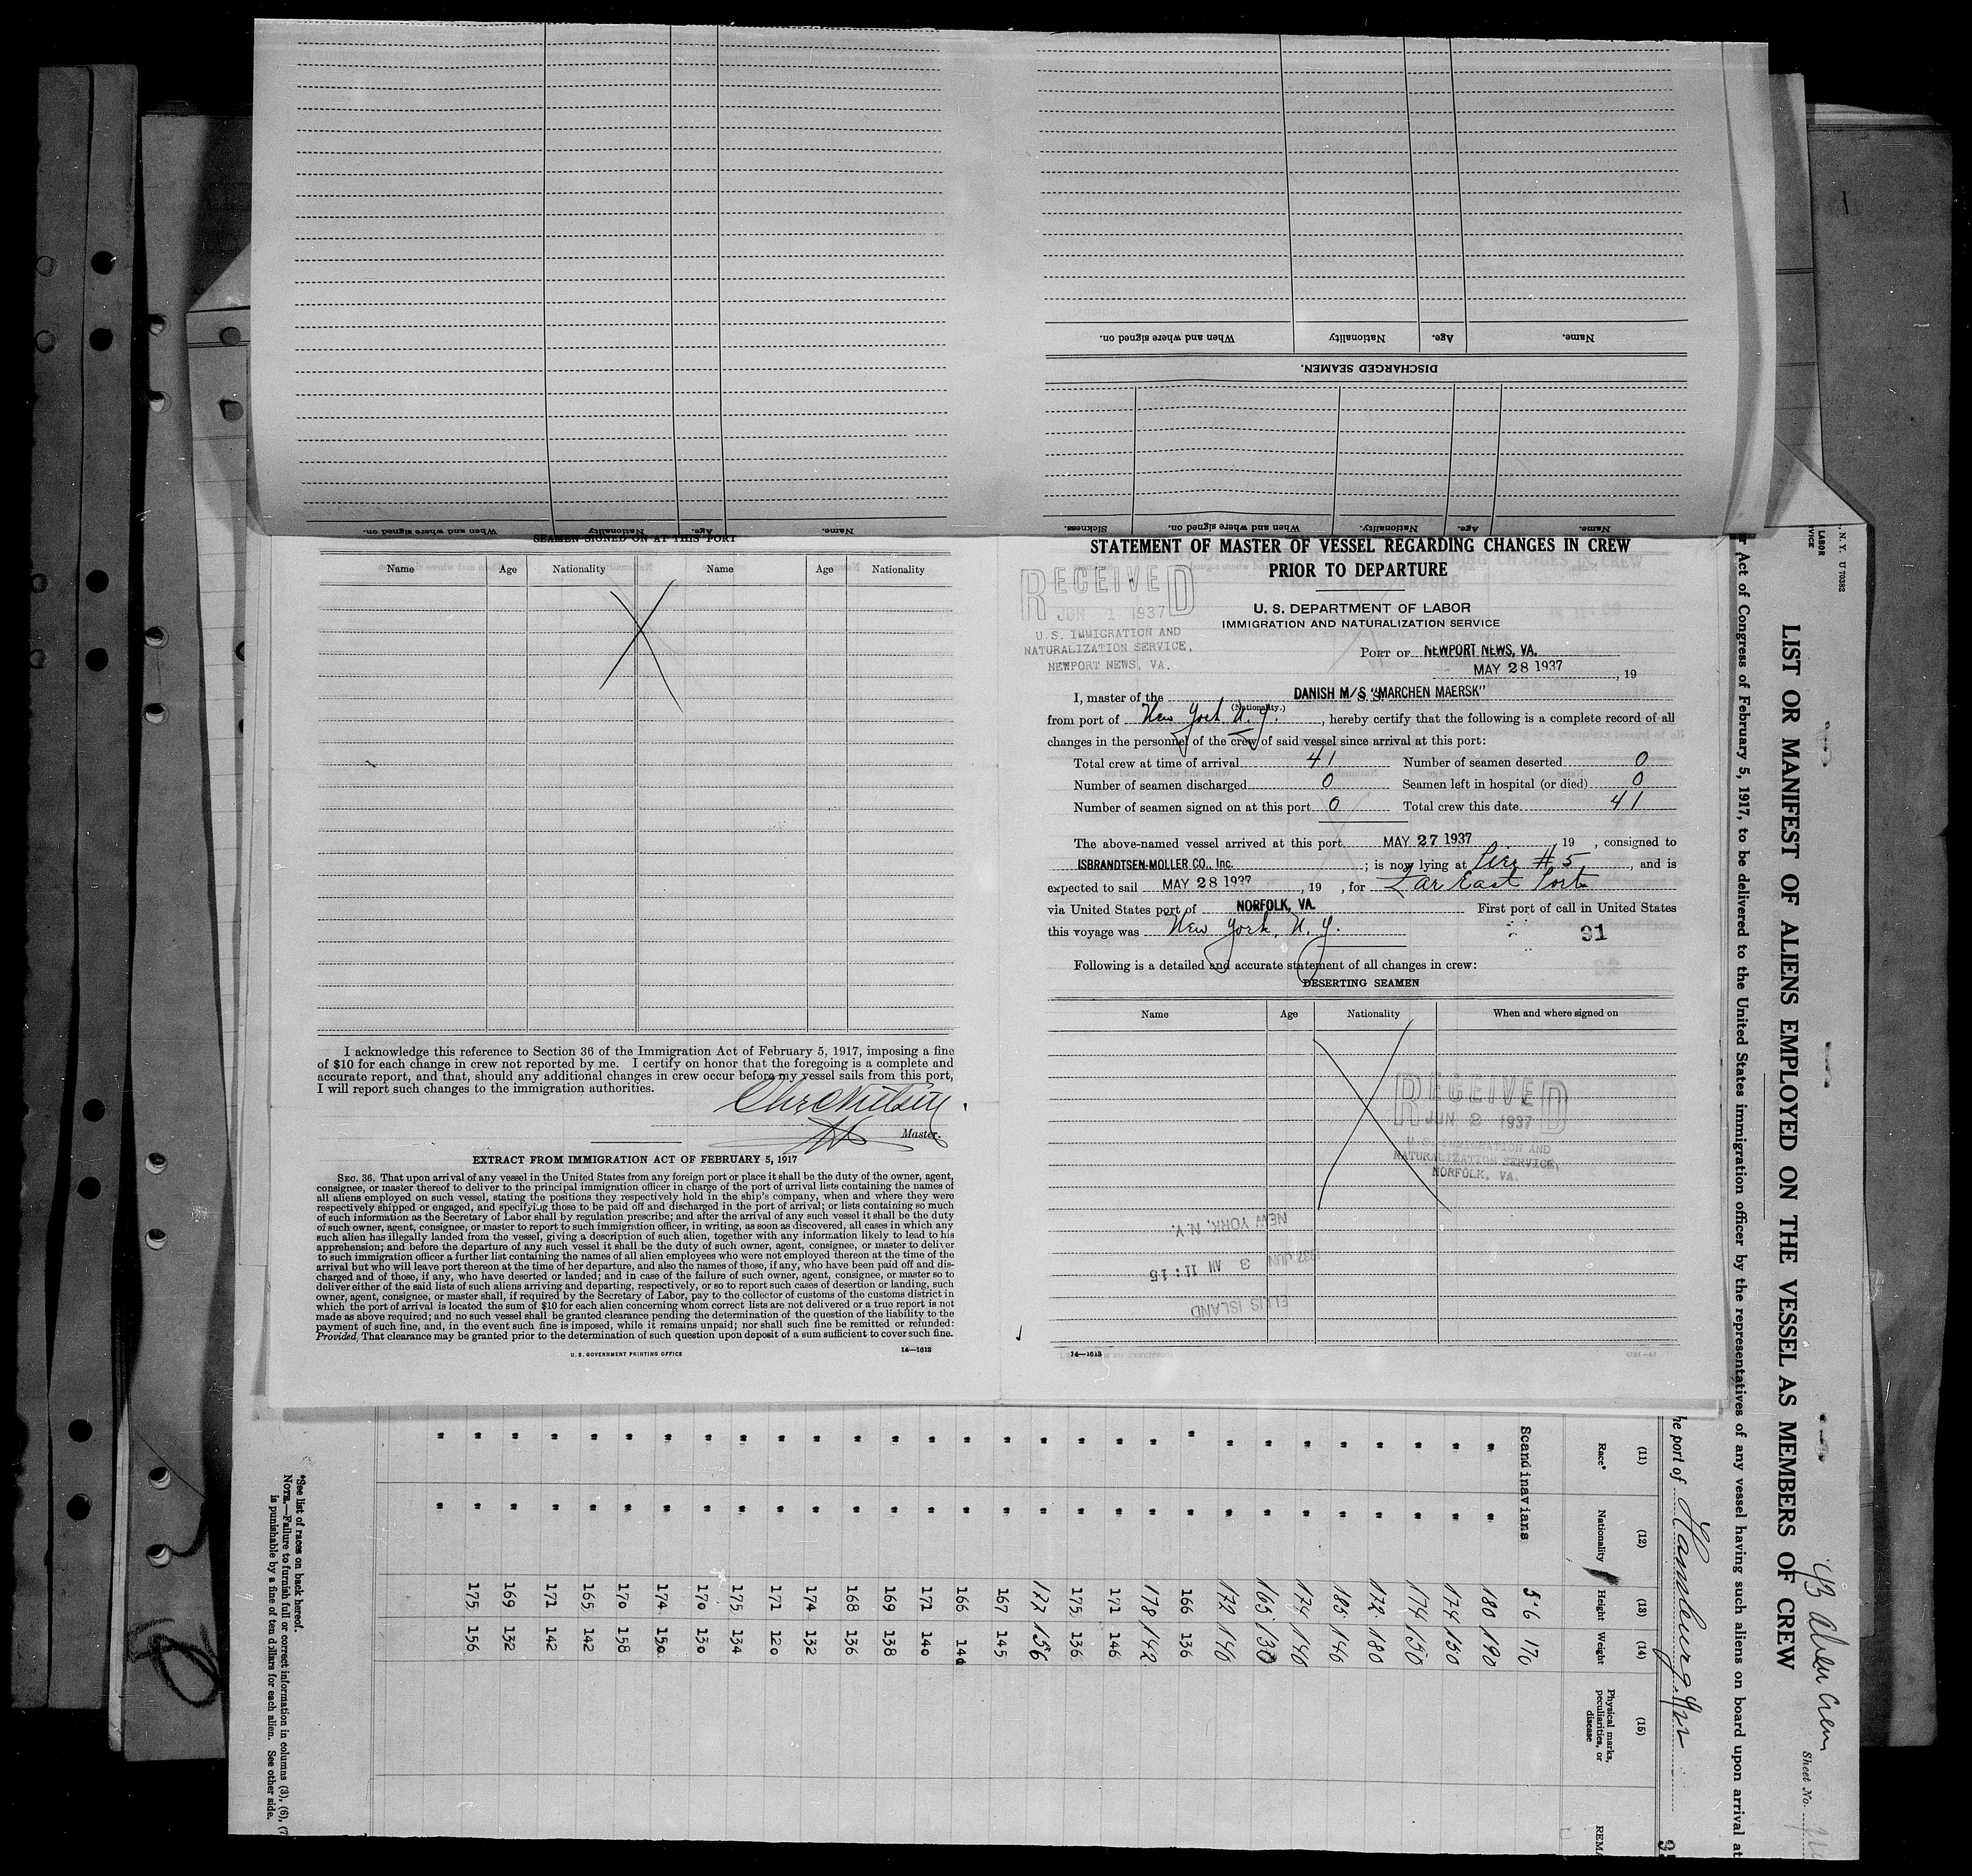 When and where signed on.
Nationality
Age.
Name.
DISCHARGED SEAMEN.
When and where signed on.
Nationality
Age.
Name.
Sickness.
When and where signed on.
Nationality.
Age.
Name
SEAMEN SIGNED ON AT THIS PORT
Name Age Nationality Name Age Nationality
I acknowledge this reference to Section 36 of the Immigration Act of February 5, 1917, imposing a fine
of $10 for each change in crew not reported by me. I certify on honor that the foregoing is a complete and
accurate report, and that, should any additional changes in crew occur before my vessel sails from this port,
I will report such changes to the immigration authorities.
Master.
EXTRACT FROM IMMIGRATION ACT OF FEBRUARY 5, 1917
SEC. 36. That upon arrival of any vessel in the United States from any foreign port or place it shall be the duty of the owner, agent,
consignee, or master thereof to deliver to the principal immigration officer in charge of the port of arrival lists containing the names of
all aliens employed on such vessel, stating the positions they respectively hold in the ship's company, when and where they were
respectively shipped or engaged, and specifying those to be paid off and discharged in the port of arrival; or lists containing so much
of such information as the Secretary of Labor shall by regulation prescribe; and after the arrival of any such vessel it shall be the duty
of such owner, agent, consignee, or master to report to such immigration officer, in writing, as soon as discovered, all cases in which any
such alien has illegally landed from the vessel, giving a description of such alien, together with any information likely to lead to his
apprehension; and before the departure of any such vessel it shall be the duty of such owner, agent, consignee, or master to deliver
to such immigration officer a further list containing the names of all alien employees who were not employed thereon at the time of the
arrival but who will leave port thereon at the time of her departure, and also the names of those, if any, who have been paid off and dis-
charged and of those, if any, who have deserted or landed; and in case of the failure of such owner, agent, consignee, or master so to
deliver either of the said lists of such aliens arriving and departing, respectively, or so to report such cases of desertion or landing, such
owner, agent, consignee, or master shall, if required by the Secretary of Labor, pay to the collector of customs of the customs district in
which the port of arrival is located the sum of $10 for each alien concerning whom correct lists are not delivered or a true report is not
made as above required; and no such vessel shall be granted clearance pending the determination of the question of the liability to the
payment of such fine, and, in the event such fine is imposed, while it remains unpaid; nor shall such fine be remitted or refunded:
Provided, That clearance may be granted prior to the determination of such question upon deposit of a sum sufficient to cover such fine.
U. S. GOVERNMENT PRINTING OFFICE 14—1613
STATEMENT OF MASTER OF VESSEL REGARDING CHANGES IN CREW
PRIOR TO DEPARTURE
RECEIVED
JUN 1 1937
U.S. IMMIGRATION AND
NATURALIZATION SERVICE,
NEWPORT NEWS, VA.
U. S. DEPARTMENT OF LABOR
IMMIGRATION AND NATURALIZATION SERVICE
PORT OF NEWPORT NEWS, VA.
MAY 28 1937, 19
I, master of the DANISH M/S "MARCHEN MAERSK"
(Nationality.)
from port of New York N.Y., hereby certify that the following is a complete record of all
changes in the personnel of the crew of said vessel since arrival at this port:
Total crew at time of arrival 41 Number of seamen deserted 0
Number of seamen discharged 0 Seamen left in hospital (or died) 0
Number of seamen signed on at this port 0 Total crew this date 41
The above-named vessel arrived at this port MAY 27 1937, 19 , consigned to
ISBRANDTSEN-MOLLER CO., Inc. ; is now lying at Pier # 5, and is
expected to sail MAY 28 1937, 19 , for Far East Ports
via United States port of NORFOLK, VA. First port of call in United States
this voyage was New York, N.Y.
91
Following is a detailed and accurate statement of all changes in crew:
DESERTING SEAMEN
Name Age Nationality When and where signed on
RECEIVED
JUN 2 1937
U.S. IMMIGRATION AND
NATURALIZATION SERVICE,
NORFOLK, VA.
NEW YORK, N.Y.
1937 JUN 3 AM 11:15
ELLIS ISLAND
14—1613
, N. Y. U 70382
LABOR
VICE
LIST OR MANIFEST OF ALIENS EMPLOYED ON THE VESSEL AS MEMBERS OF CREW
r Act of Congress of February 5, 1917, to be delivered to the United States immigration officer by the representatives of any vessel having such aliens on board upon arrival at
Sheet No.
he port of Hamburg
(11) (12) (13) (14) (15)
Race* Nationality Height Weight Physical marks, peculiarities, or disease REMA
Scandinavians 5-6 170
" " 180 190
" " 174 150
" " 174 150
" " 172 180
" " 185 146
" " 174 140
" " 165 130
" " 172 140
" " 166 136
" " 178 142
" " 171 146
" " 175 136
" " 177 156
" " 167 145
" " 166 140
" " 171 140
" " 169 138
" " 168 136
" " 174 132
" " 171 120
" " 175 134
" " 170 130
" " 174 150
" " 170 158
" " 165 142
" " 171 142
" " 169 132
" " 175 156
" "
*See list of races on back hereof.
NOTE.—Failure to furnish full or correct information in columns (3), (6), (7
is punishable by a fine of ten dollars for each alien. See other side.